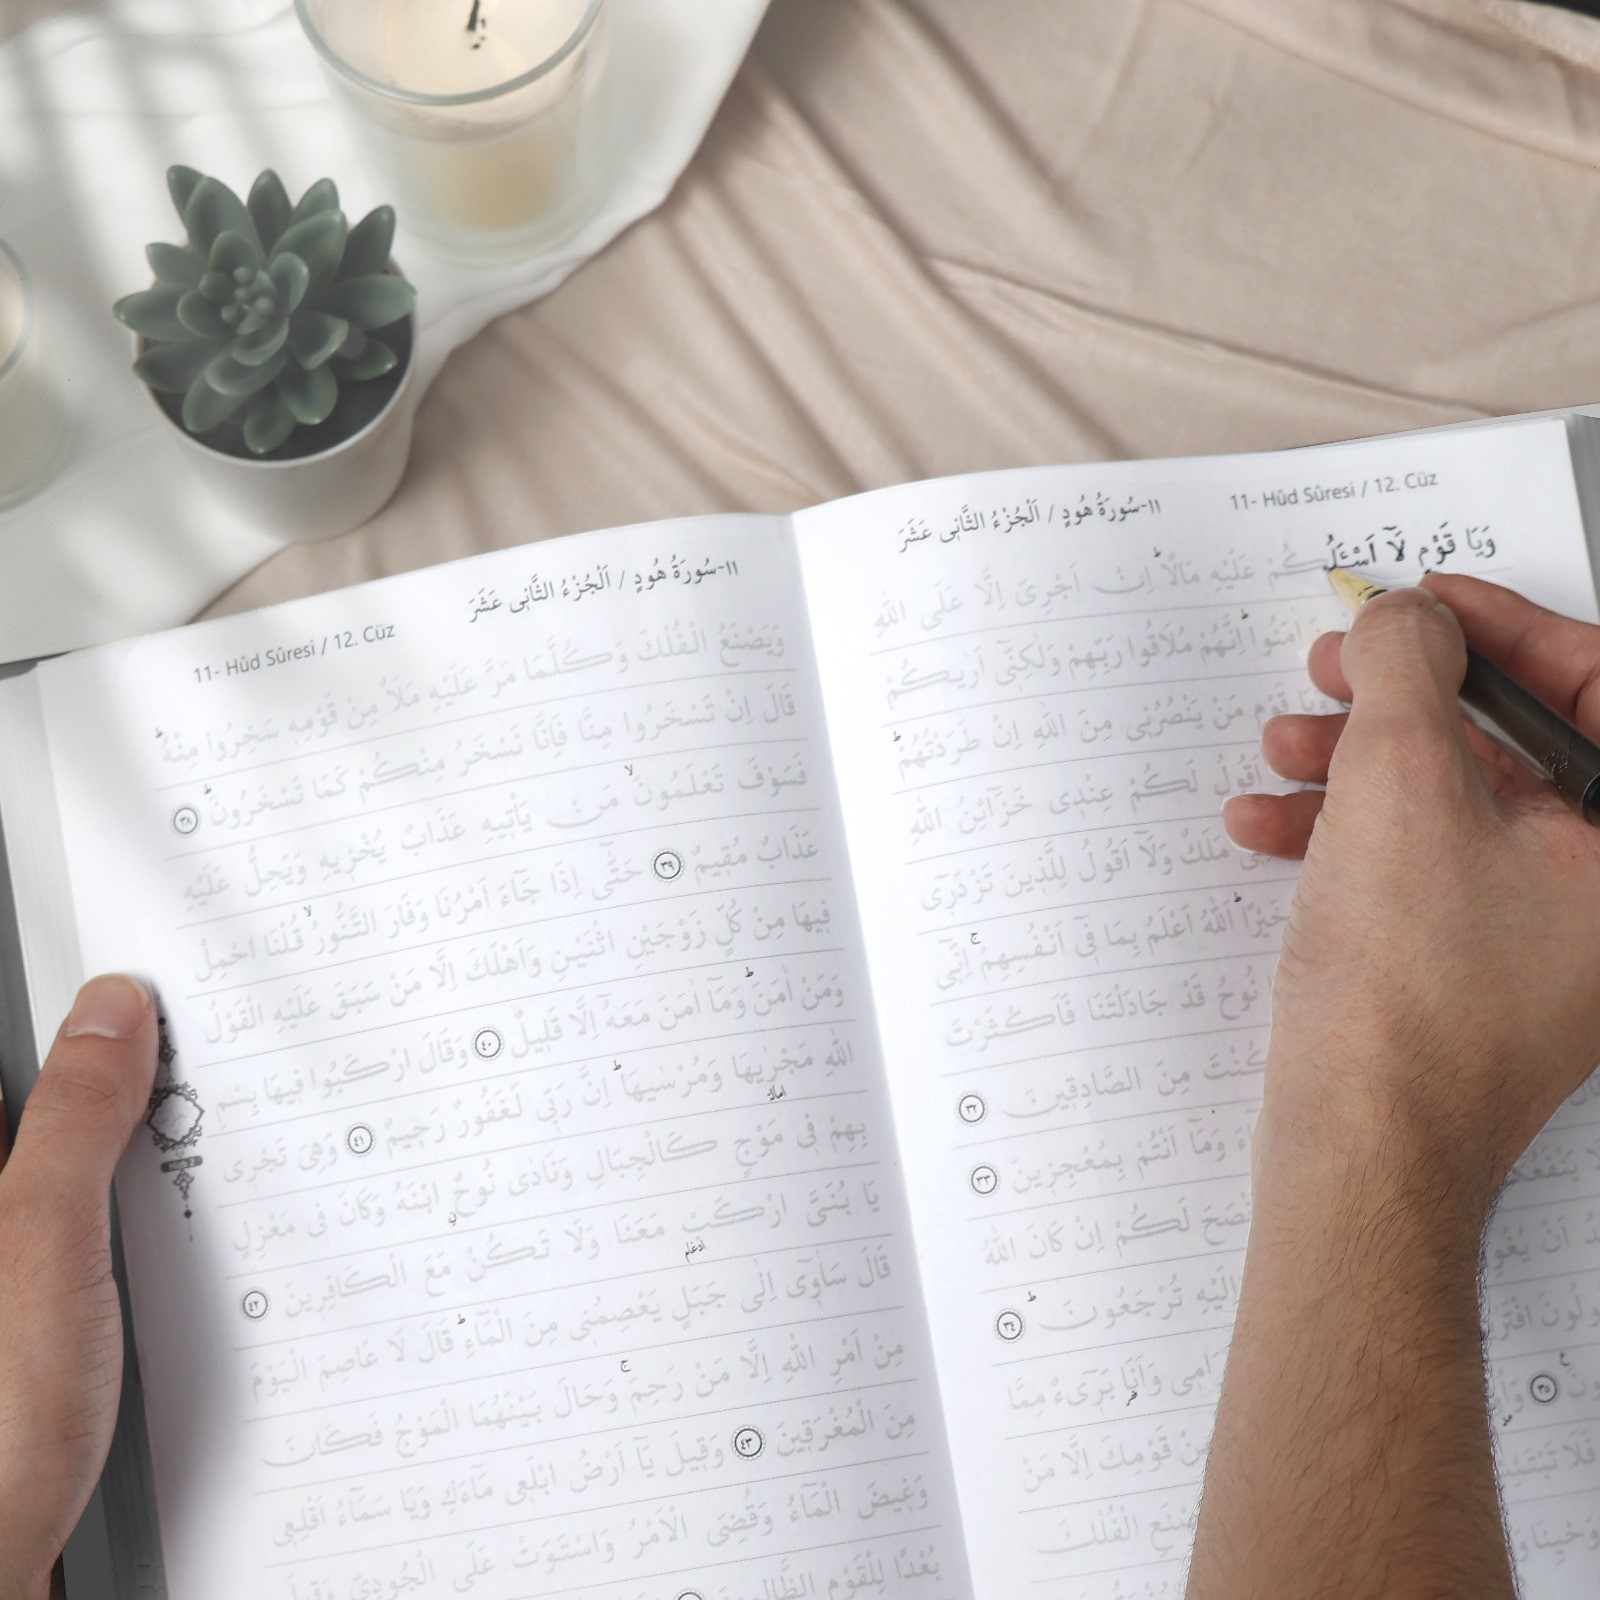 ١١-سُورَةُ هُودٍ / اَلْجُزْءُ الثَّانٖى عَشَرَ
11- Hûd Sûresi / 12. Cüz
وَيَا قَوْمِ لَٓا اَسْـَٔلُكُمْ عَلَيْهِ مَالًاؕ اِنْ اَجْرِىَ اِلَّا عَلَى اللّٰهِ
اٰمَنُواؕ اِنَّهُمْ مُلَاقُوا رَبِّهِمْ وَلٰكِنّٖٓى اَرٰيكُمْ
وَيَا قَوْمِ مَنْ يَنْصُرُنٖى مِنَ اللّٰهِ اِنْ طَرَدْتُهُمْؕ
اَقُولُ لَكُمْ عِنْدٖى خَزَٓائِنُ اللّٰهِ
مَلَكٌ وَلَٓا اَقُولُ لِلَّذٖينَ تَزْدَرٖٓى
خَيْرًاؕ اَللّٰهُ اَعْلَمُ بِمَا فٖٓى اَنْفُسِهِمْۚ اِنّٖٓى
نُوحُ قَدْ جَادَلْتَنَا فَاَكْثَرْتَ
كُنْتَ مِنَ الصَّادِقٖينَ ٣٢
وَمَٓا اَنْتُمْ بِمُعْجِزٖينَ ٣٣
يَنْفَعُكُمْ اَنْصَحَ لَكُمْ اِنْ كَانَ اللّٰهُ
اَنْ يُغْوِيَكُمْ اِلَيْهِ تُرْجَعُونَؕ ٣٤
اِجْرَامٖى وَاَنَا بَرٖٓىءٌ مِمَّا ٣٥
مِنْ قَوْمِكَ اِلَّا مَنْ
فَلَا تَبْتَئِسْ
وَاصْنَعِ الْفُلْكَ
وَوَحْيِنَا
١١-سُورَةُ هُودٍ / اَلْجُزْءُ الثَّانٖى عَشَرَ
11- Hûd Sûresi / 12. Cüz
وَيَصْنَعُ الْفُلْكَ وَكُلَّمَا مَرَّ عَلَيْهِ مَلَاٌ مِنْ قَوْمِهٖ سَخِرُوا مِنْهُؕ
قَالَ اِنْ تَسْخَرُوا مِنَّا فَاِنَّا نَسْخَرُ مِنْكُمْ كَمَا تَسْخَرُونَؕ ٣٨
فَسَوْفَ تَعْلَمُونَۙ مَنْ يَأْتٖيهِ عَذَابٌ يُخْزٖيهِ وَيَحِلُّ عَلَيْهِ
عَذَابٌ مُقٖيمٌ ٣٩ حَتّٰٓى اِذَا جَٓاءَ اَمْرُنَا وَفَارَ التَّنُّورُۙ قُلْنَا احْمِلْ
فٖيهَا مِنْ كُلٍّ زَوْجَيْنِ اثْنَيْنِ وَاَهْلَكَ اِلَّا مَنْ سَبَقَ عَلَيْهِ الْقَوْلُ
وَمَنْ اٰمَنَؕ وَمَٓا اٰمَنَ مَعَهُٓ اِلَّا قَلٖيلٌ ٤٠ وَقَالَ ارْكَبُوا فٖيهَا بِسْمِ
اللّٰهِ مَجْرٰۭيهَا وَمُرْسٰيهَاؕ اِنَّ رَبّٖى لَغَفُورٌ رَحٖيمٌ ٤١ وَهِىَ تَجْرٖى
بِهِمْ فٖى مَوْجٍ كَالْجِبَالِ وَنَادٰى نُوحٌ ابْنَهُ وَكَانَ فٖى مَعْزِلٍ
يَا بُنَىَّ ارْكَبْ مَعَنَا وَلَا تَكُنْ مَعَ الْكَافِرٖينَ ٤٢
قَالَ سَاٰوٖٓى اِلٰى جَبَلٍ يَعْصِمُنٖى مِنَ الْمَٓاءِؕ قَالَ لَا عَاصِمَ الْيَوْمَ
مِنْ اَمْرِ اللّٰهِ اِلَّا مَنْ رَحِمَۚ وَحَالَ بَيْنَهُمَا الْمَوْجُ فَكَانَ
مِنَ الْمُغْرَقٖينَ ٤٣ وَقٖيلَ يَٓا اَرْضُ ابْلَعٖى مَٓاءَكِ وَيَا سَمَٓاءُ اَقْلِعٖى
وَغٖيضَ الْمَٓاءُ وَقُضِىَ الْاَمْرُ وَاسْتَوَتْ عَلَى الْجُودِىِّ وَقٖيلَ
بُعْدًا لِلْقَوْمِ الظَّالِمٖينَ